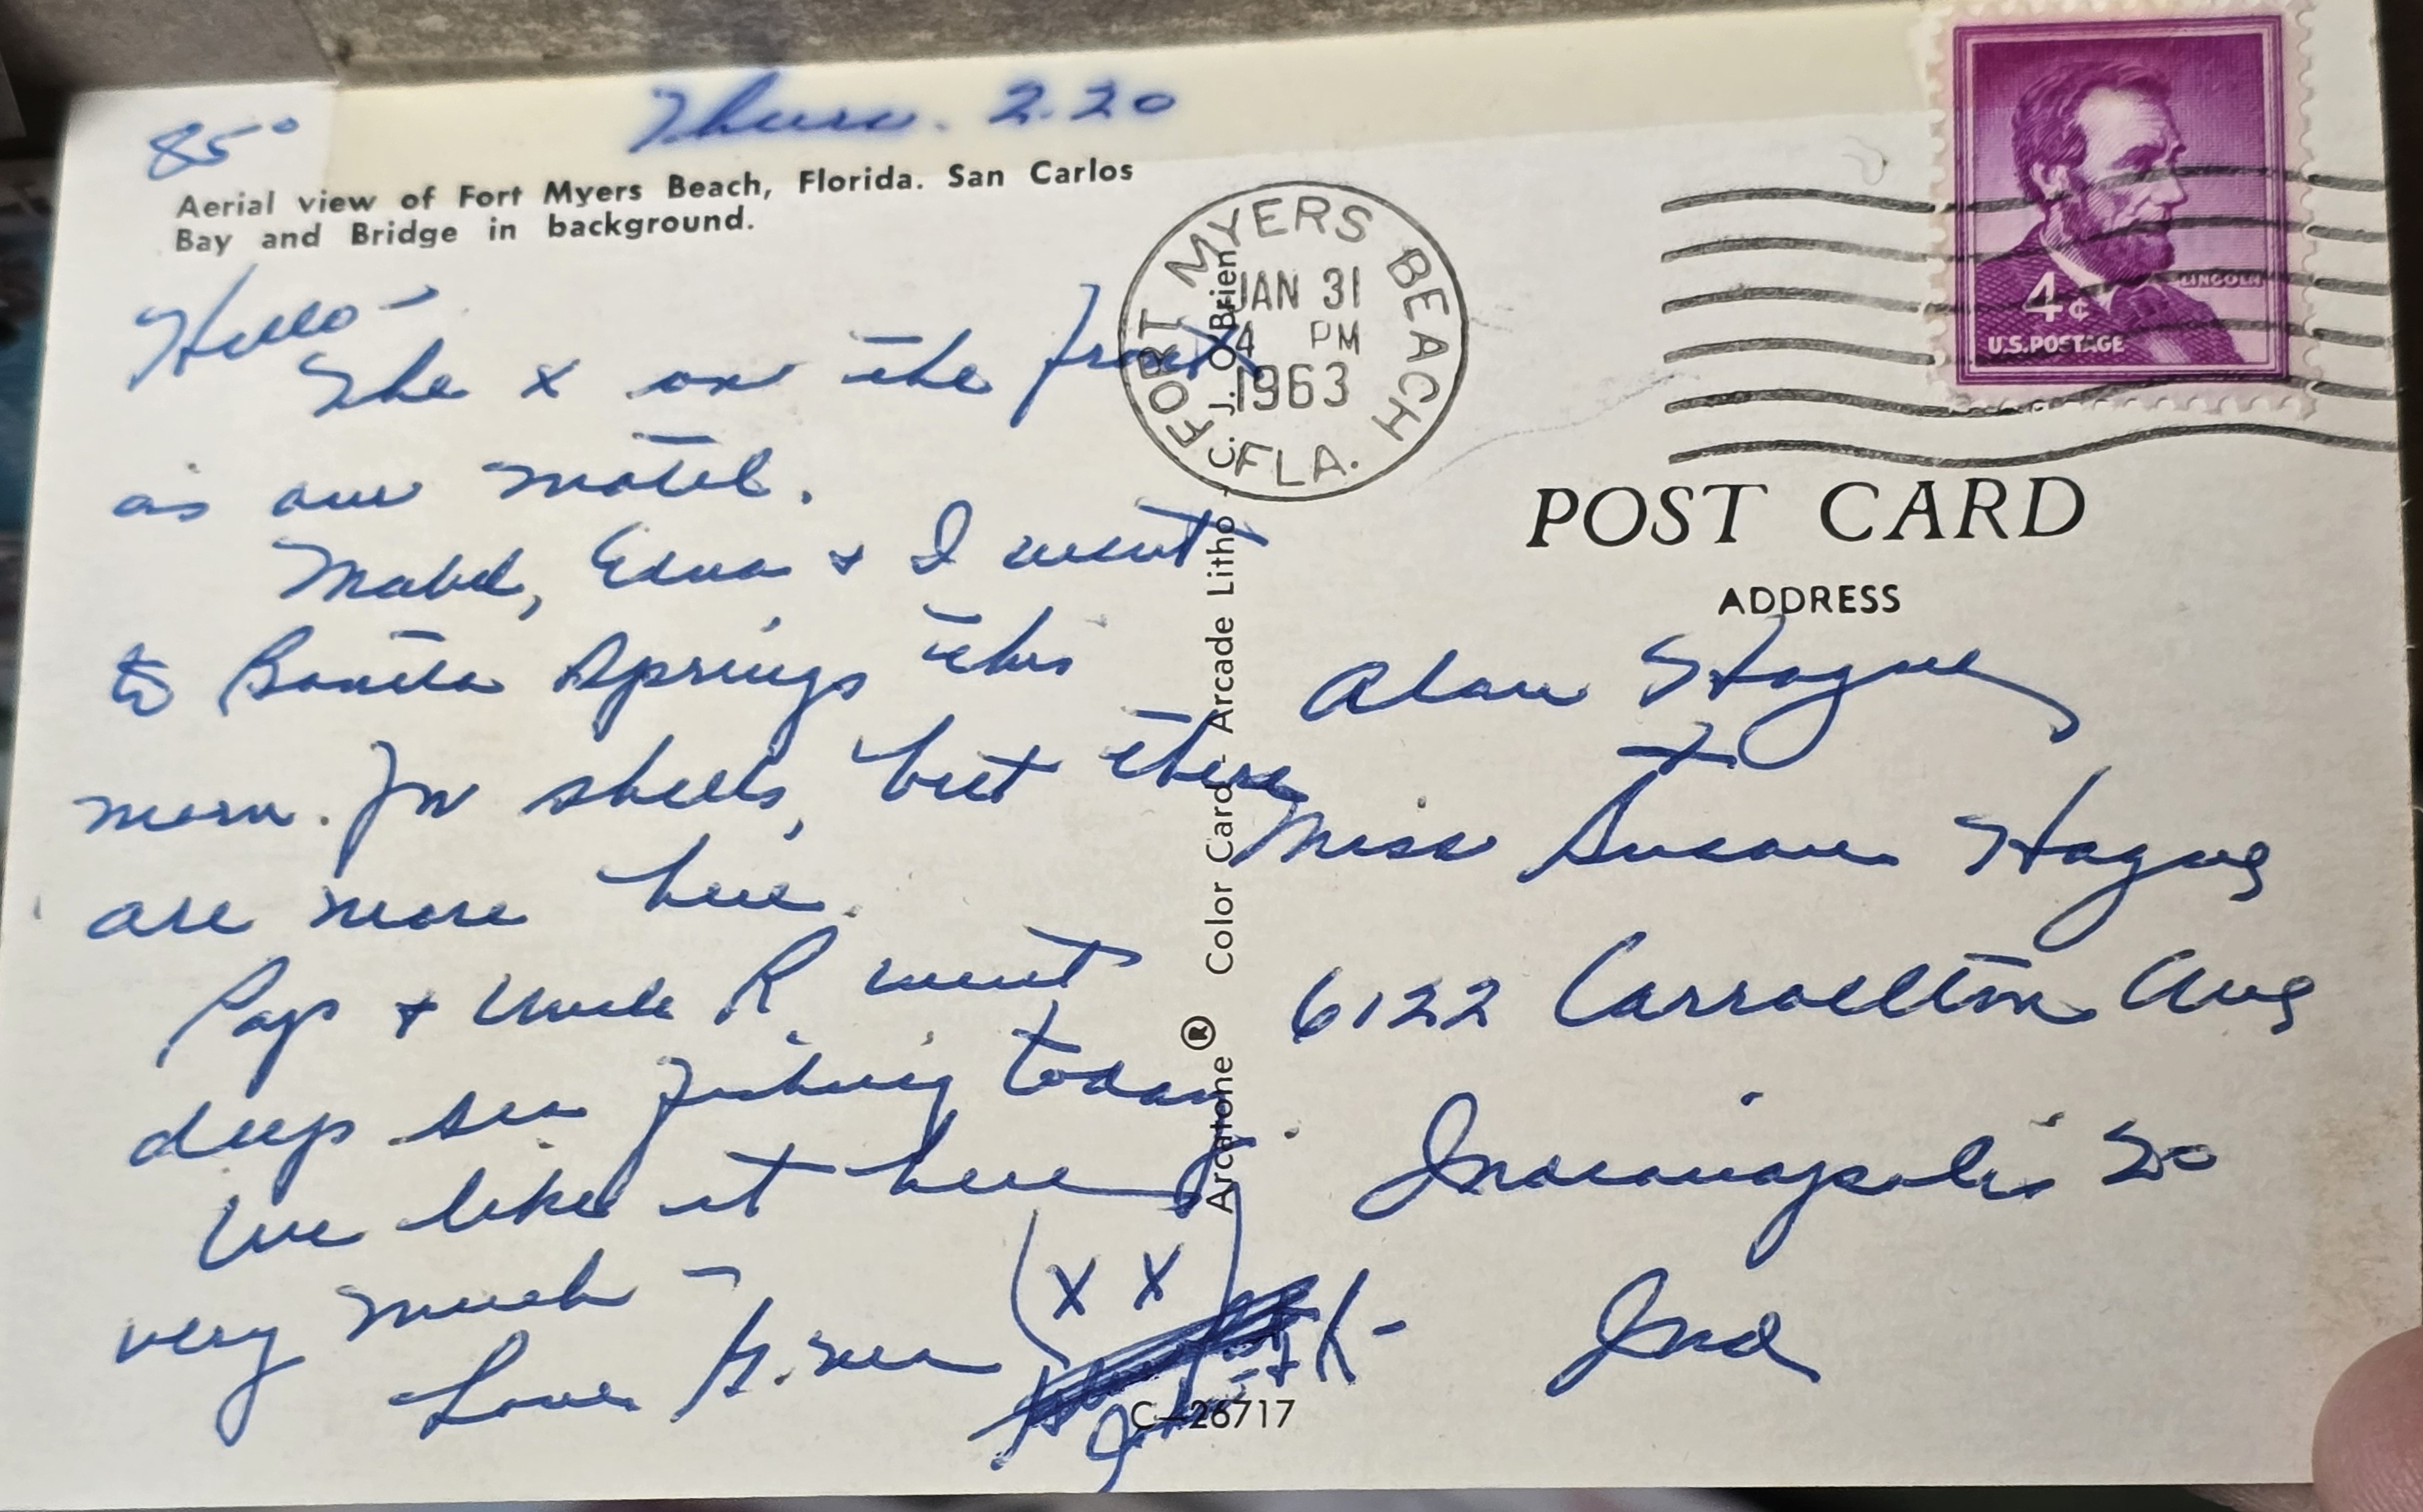 85°
Thurs. 2.20
Aerial view of Fort Myers Beach, Florida. San Carlos
Bay and Bridge in background.
Hello -
The x on the front
is our motel.
Mabel, Edna + I went
to Bonita Springs this
morn. for shells, but there
are more here.
Pop + Uncle R. went
deep sea fishing today.
We like it here
very much -
Love
(x x)
C-26717
Arcatone ® Color Card - Arcade Litho - C. J. O'Brien
FORT MYERS BEACH
JAN 31
4 PM
1963
FLA.
LINCOLN
4¢
U.S. POSTAGE
POST CARD
ADDRESS
Alan Hague
+
Miss Susan Hague
6122 Carrollton Ave
Indianapolis 20
Ind